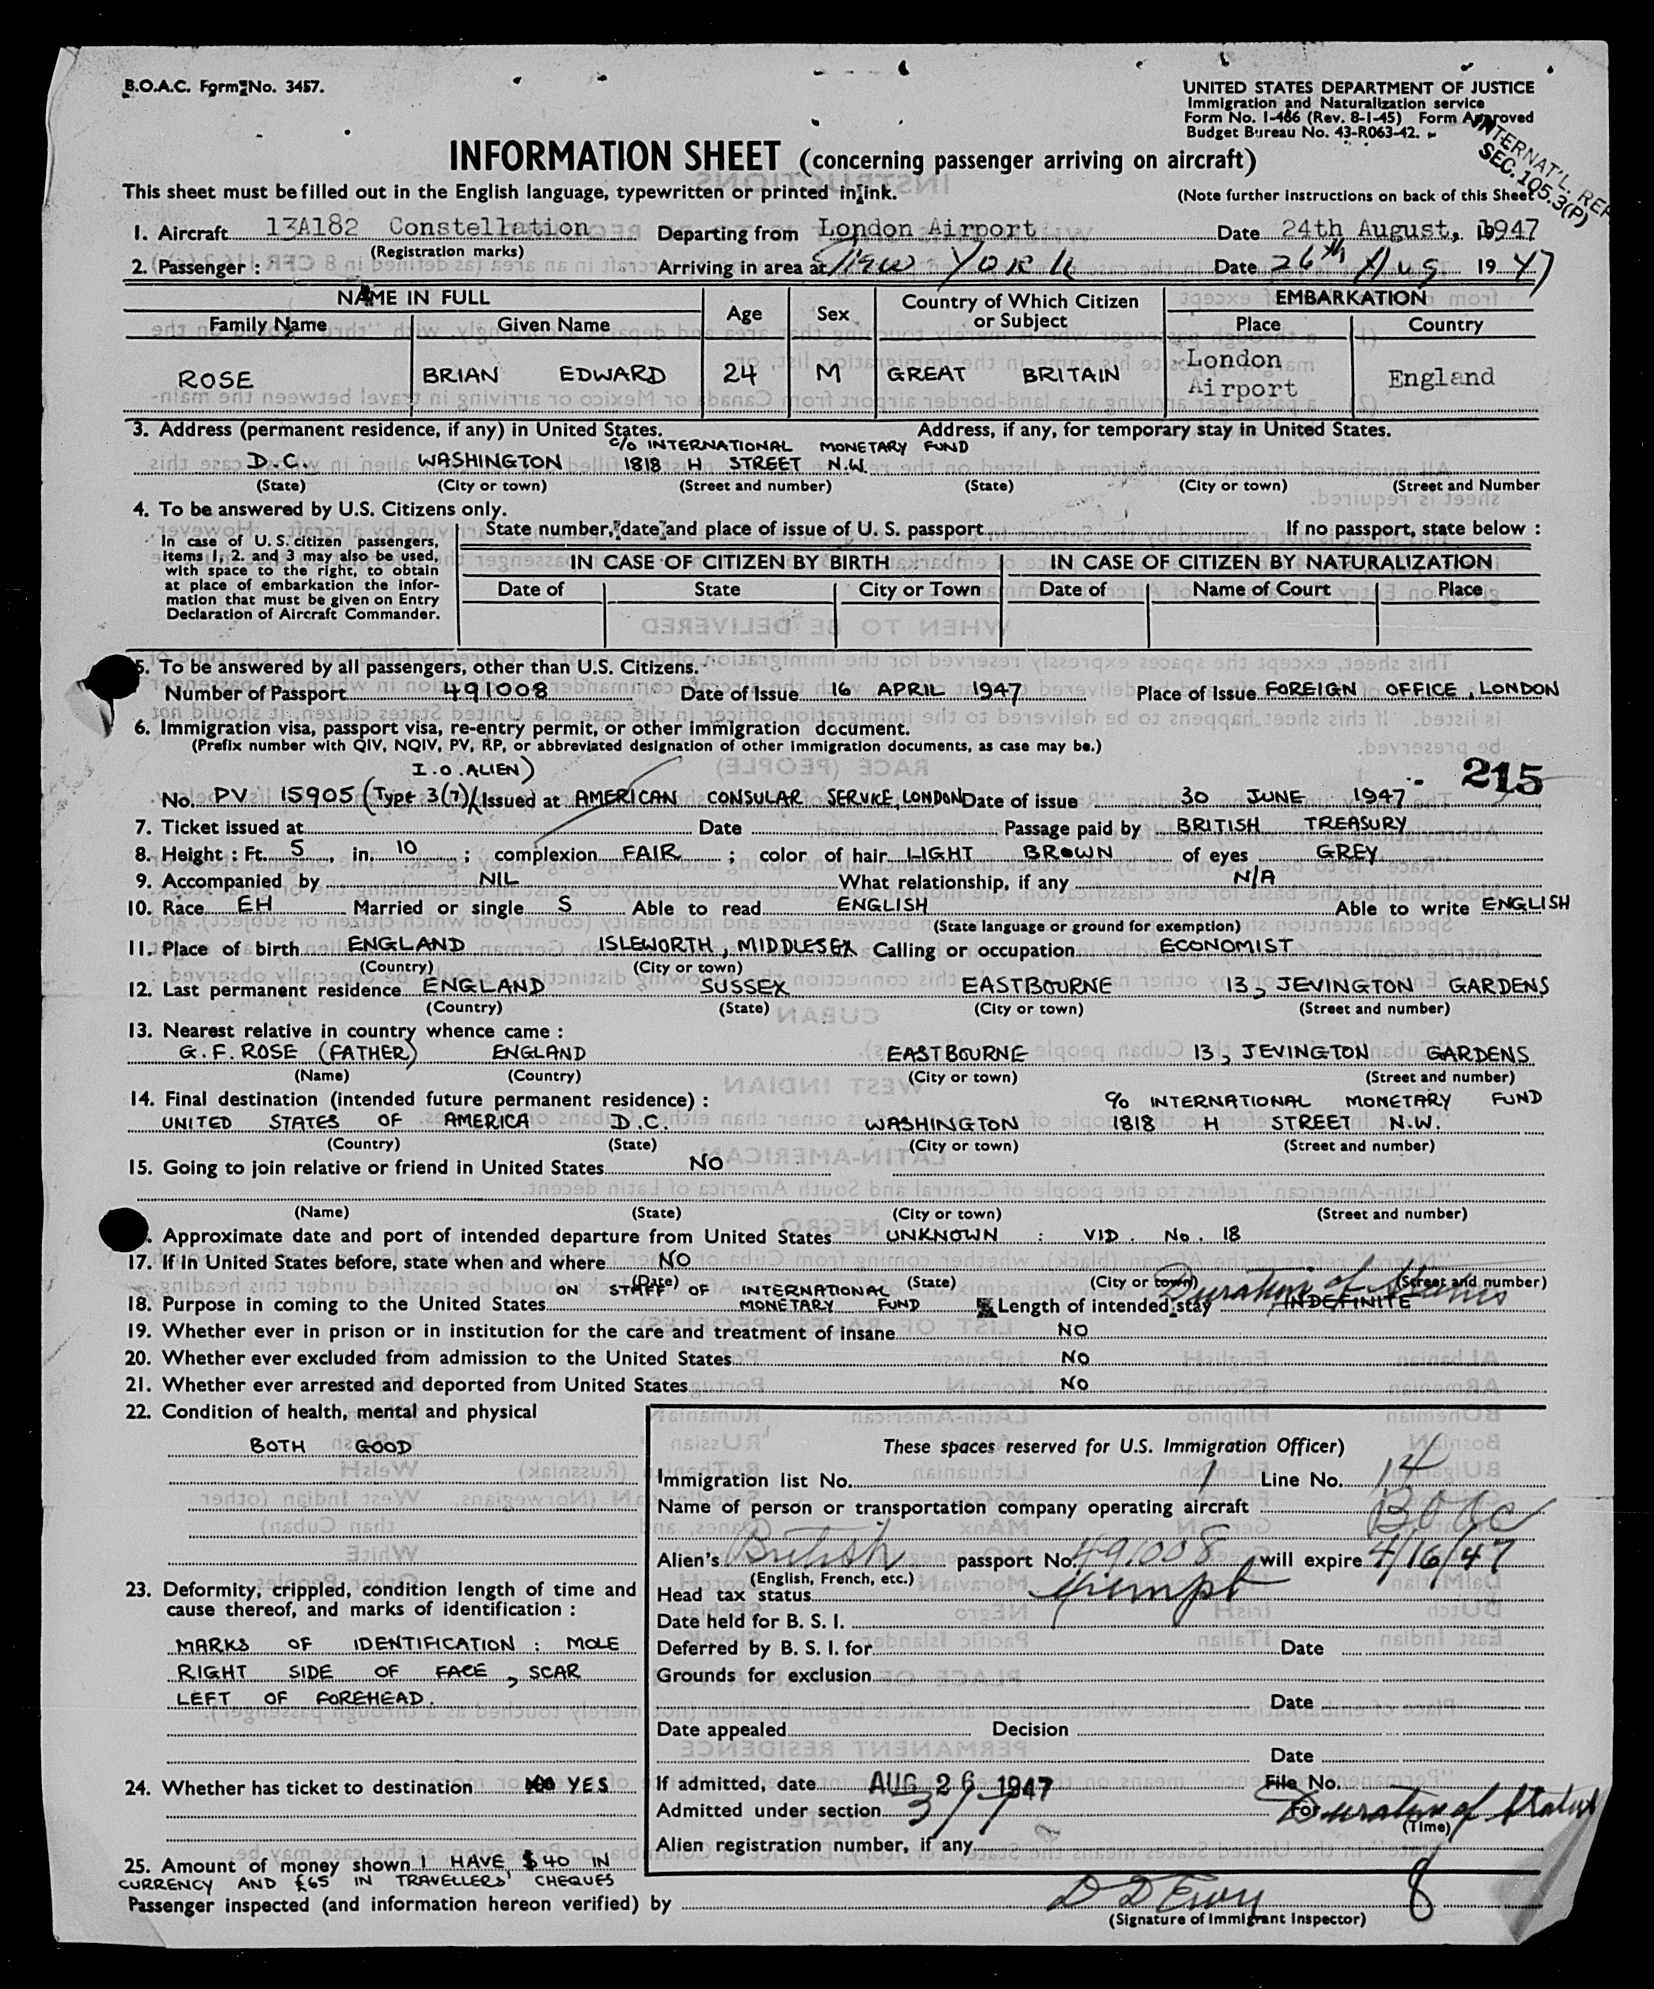 B.O.A.C. Form No. 3457.
UNITED STATES DEPARTMENT OF JUSTICE
Immigration and Naturalization service
Form No. I-466 (Rev. 8-1-45) Form Approved
Budget Bureau No. 43-R063-42.
INTERNAT'L. REP
SEC. 105.3(P)
INFORMATION SHEET (concerning passenger arriving on aircraft)
This sheet must be filled out in the English language, typewritten or printed in ink.
(Note further instructions on back of this Sheet
1. Aircraft 13A182 Constellation Departing from London Airport Date 24th August, 1947
(Registration marks)
2. Passenger : Arriving in area at New York Date 26th Aug 1947
NAME IN FULL Age Sex Country of Which Citizen or Subject EMBARKATION
Family Name Given Name Place Country
ROSE BRIAN EDWARD 24 M GREAT BRITAIN London Airport England
3. Address (permanent residence, if any) in United States. Address, if any, for temporary stay in United States.
c/o INTERNATIONAL MONETARY FUND
D.C. WASHINGTON 1818 H STREET N.W.
(State) (City or town) (Street and number) (State) (City or town) (Street and Number
4. To be answered by U.S. Citizens only.
State number, date and place of issue of U. S. passport If no passport, state below :
In case of U. S. citizen passengers,
items 1, 2. and 3 may also be used,
with space to the right, to obtain
at place of embarkation the infor-
mation that must be given on Entry
Declaration of Aircraft Commander.
IN CASE OF CITIZEN BY BIRTH IN CASE OF CITIZEN BY NATURALIZATION
Date of State City or Town Date of Name of Court Place
5. To be answered by all passengers, other than U.S. Citizens.
Number of Passport 491008 Date of Issue 16 APRIL 1947 Place of Issue FOREIGN OFFICE, LONDON
6. Immigration visa, passport visa, re-entry permit, or other immigration document.
(Prefix number with QIV, NQIV, PV, RP, or abbreviated designation of other immigration documents, as case may be.)
I.O. ALIEN)
215
No. PV 15905 (Type 3(7) Issued at AMERICAN CONSULAR SERVICE, LONDON Date of issue 30 JUNE 1947
7. Ticket issued at Date Passage paid by BRITISH TREASURY
8. Height : Ft. 5, in. 10 ; complexion FAIR ; color of hair LIGHT BROWN of eyes GREY
9. Accompanied by NIL What relationship, if any N/A
10. Race EH Married or single S Able to read ENGLISH Able to write ENGLISH
(State language or ground for exemption)
11. Place of birth ENGLAND ISLEWORTH, MIDDLESEX Calling or occupation ECONOMIST
(Country) (City or town)
12. Last permanent residence ENGLAND SUSSEX EASTBOURNE 13, JEVINGTON GARDENS
(Country) (State) (City or town) (Street and number)
13. Nearest relative in country whence came :
G.F. ROSE (FATHER) ENGLAND EASTBOURNE 13, JEVINGTON GARDENS
(Name) (Country) (City or town) (Street and number)
14. Final destination (intended future permanent residence) : c/o INTERNATIONAL MONETARY FUND
UNITED STATES OF AMERICA D.C. WASHINGTON 1818 H STREET N.W.
(Country) (State) (City or town) (Street and number)
15. Going to join relative or friend in United States NO
(Name) (State) (City or town) (Street and number)
. Approximate date and port of intended departure from United States UNKNOWN : VID. No. 18
17. If in United States before, state when and where NO
(Date) (State) (City or town) (Street and number)
ON STAFF OF INTERNATIONAL Duration of Status
18. Purpose in coming to the United States MONETARY FUND Length of intended stay INDEFINITE
19. Whether ever in prison or in institution for the care and treatment of insane NO
20. Whether ever excluded from admission to the United States NO
21. Whether ever arrested and deported from United States NO
22. Condition of health, mental and physical
BOTH GOOD
23. Deformity, crippled, condition length of time and
cause thereof, and marks of identification :
MARKS OF IDENTIFICATION : MOLE
RIGHT SIDE OF FACE, SCAR
LEFT OF FOREHEAD.
24. Whether has ticket to destination NO YES
25. Amount of money shown I HAVE $40 IN
CURRENCY AND £65 IN TRAVELLERS' CHEQUES
These spaces reserved for U.S. Immigration Officer)
Immigration list No. 1 Line No. 14
Name of person or transportation company operating aircraft BOAC
Alien's British passport No. 491008 will expire 4/16/47
(English, French, etc.)
Head tax status exempt
Date held for B. S. I.
Deferred by B. S. I. for Date
Grounds for exclusion
Date
Date appealed Decision
Date
If admitted, date AUG 26 1947 File No.
Admitted under section 3/7 For Duration of Status
(Time)
Alien registration number, if any
Passenger inspected (and information hereon verified) by
8
(Signature of Immigrant Inspector)